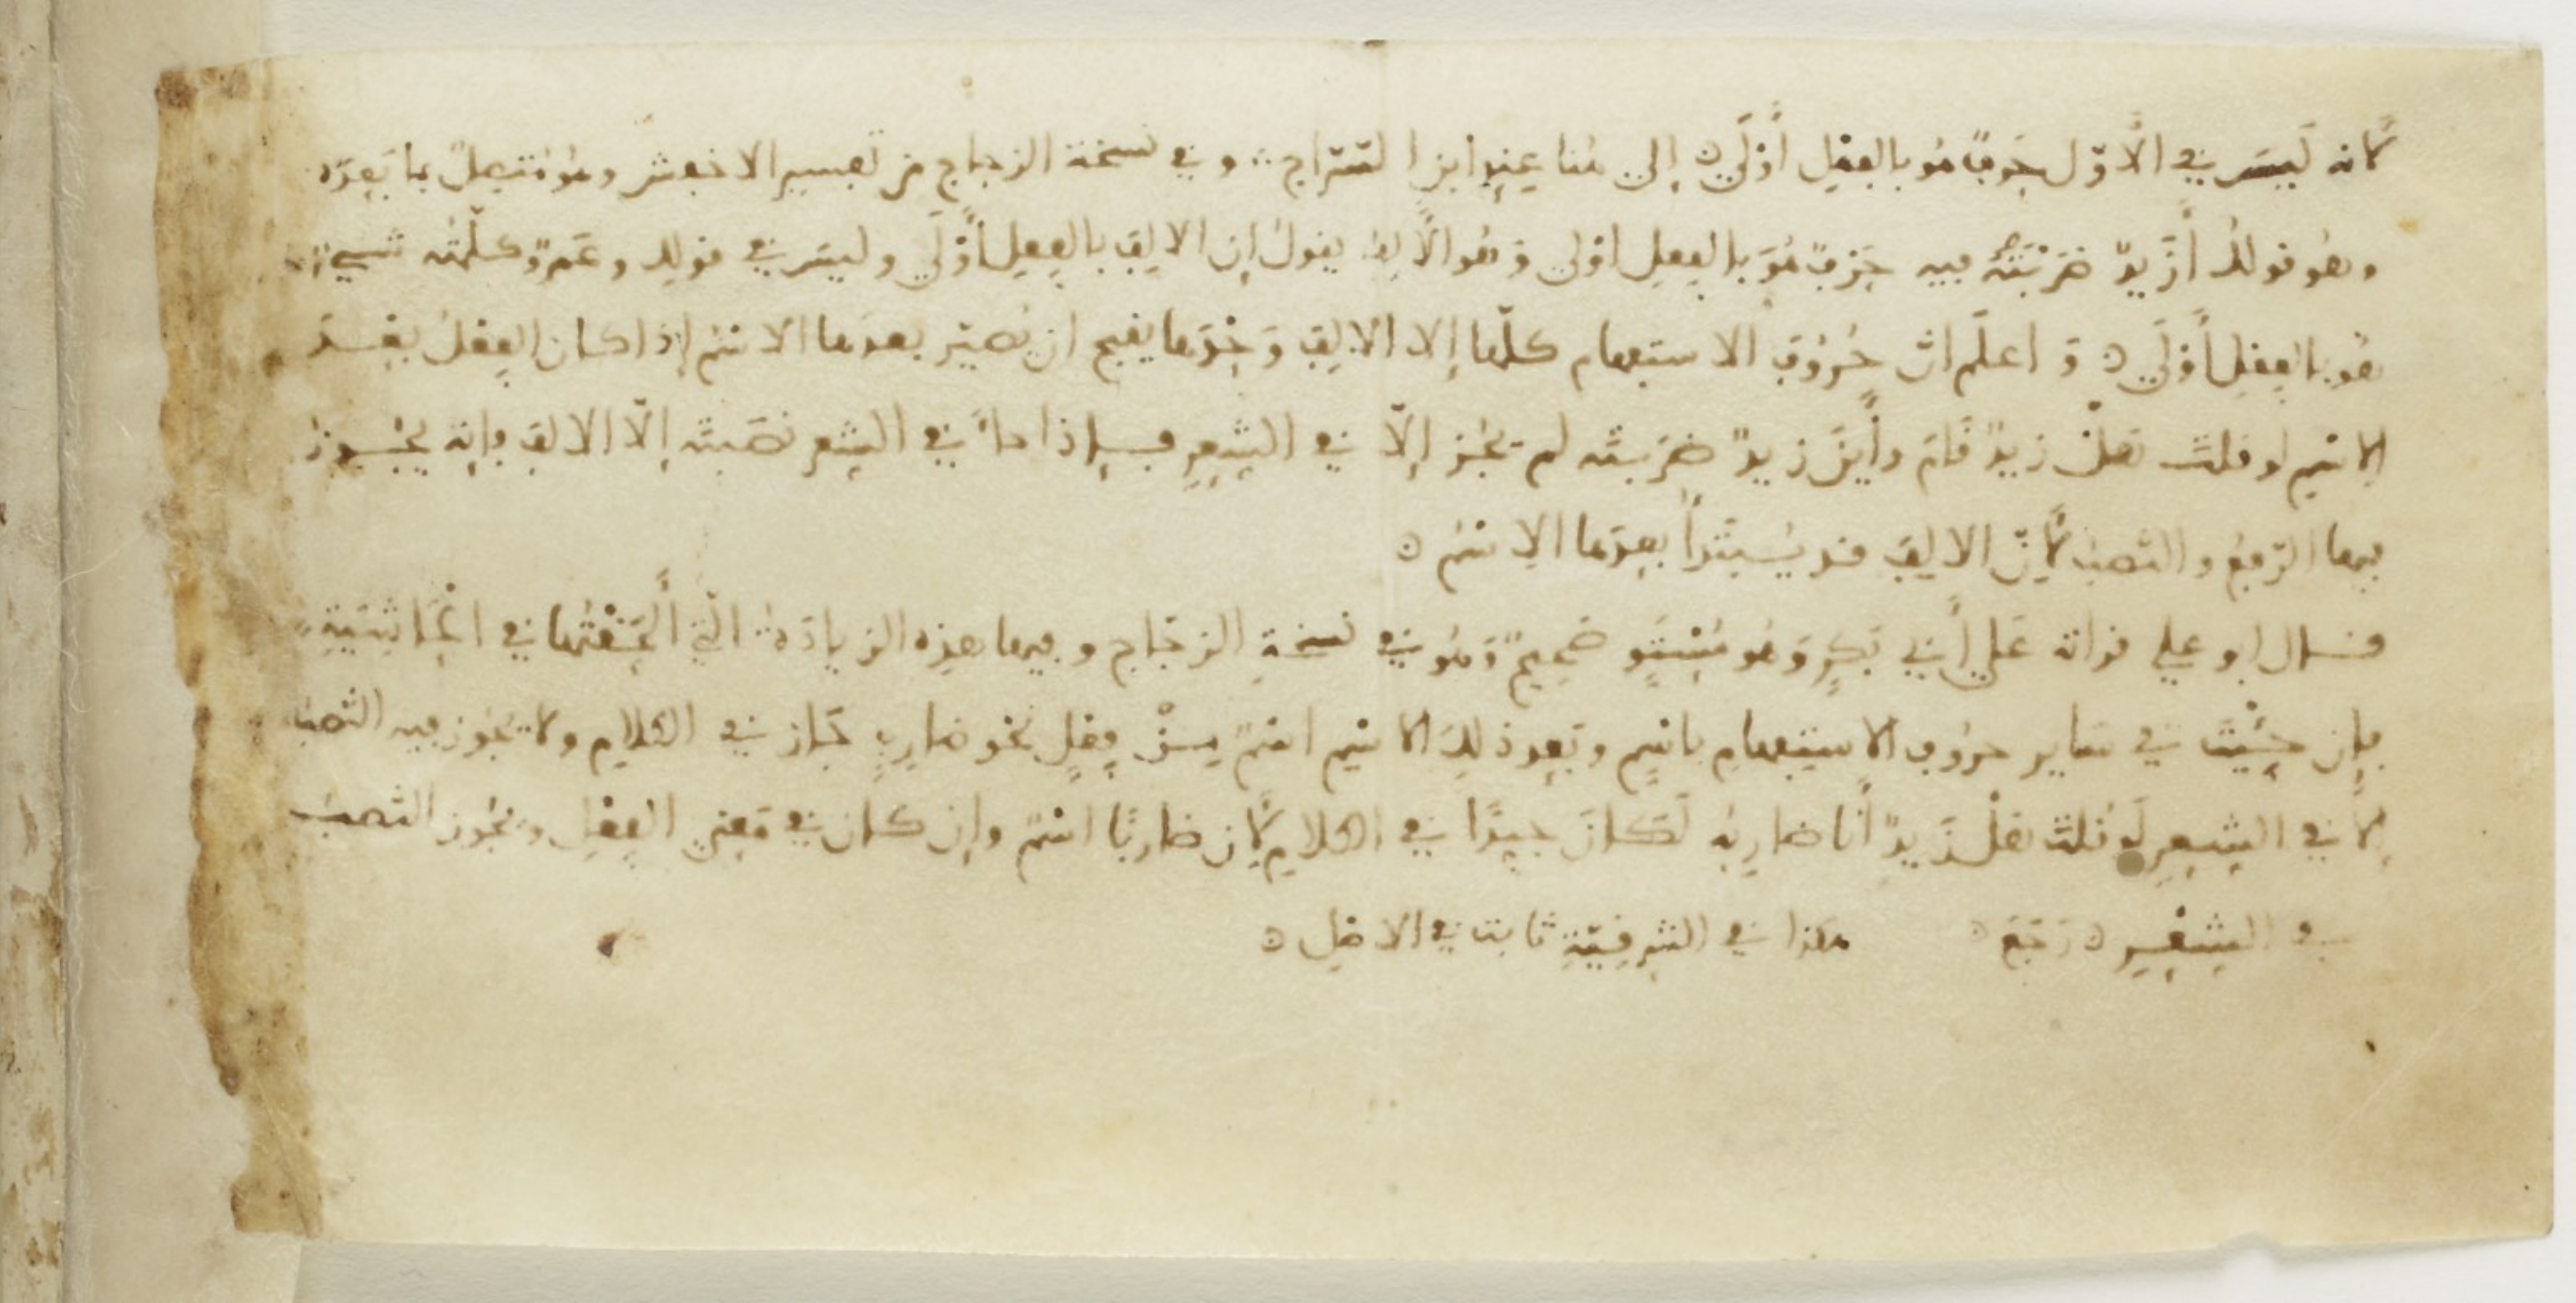 لأنه ليسَ في الأوّل حَرفٌ هُو بالفِعْلِ أَوْلَى ۞ إلى هُنا عِندِ ابنِ السَّرّاج ۞ وفي نسخة الزجاج من تفسير الاخفش وهُوَ مُتَّصِلٌ بما بَعدَه
وهُو قولكُ أزَيدٌ ضَرَبْتَهُ فيه حَرفٌ هُوَ بالفعلِ اوْلى وَهُو الأَلِفُ يقولُ إن الالِفَ بالفِعلِ أَوْلَى وليسَ في قولِك وعَمرٌو كلّمتُه شيءٌ
هُو بالفِعْلِ أَوْلَى ۞ وَاعلَم انّ حُرُوفَ الاستفهام كلّها إلا الالِفَ وَحْدَها يقبح ان يُصيّر بعدَها الاسْم إذا كان الفِعْلُ بعْدَ
الاسْمِ لو قلتَ هلْ زيدٌ قَامَ وأَينَ زيدٌ ضَرَبتَه لم يَجُز إلّا في الشِعْرِ فإذا جاءَ في الشِعر نصَبتَه إلّا الالِفَ فإنّه يَجُوزُ
فيها الرّفعُ والنّصبُ لأَنّ الالِفَ قد يُبْتَدأُ بعدَها الاسْمُ ۞
قال ابو علي قراتُه عَلَى أَبي بَكرٍ وَهُو مُسْتَوٍ صَحِيحٌ وَهُو في نسخةِ الزجّاج وفيها هذِه الزيادَةُ الّتي أَلحَقْتُها في الحَاشِيَةِ
فإن جِئْتَ في سَاير حرُوفِ الاستِفهامِ باسْمٍ وبَعد ذلِكَ الاسْمِ اسْمٌ مِنْ فِعْلٍ نحْو ضارِبٍ جَاز في الكَلامِ ولا يجُوز فيه النّصبُ
إلّا في الشِعرِ لَو قُلتَ هَلْ زَيدٌ أَنا ضارِبُه لَكانَ جيِدًا في الكلامِ لأَن ضارِبًا اسْمٌ وإن كان في مَعنَى الفِعْلِ ويجُوز النّصبُ
في الشِعْرِ ۞ رَجَعَ ۞ هكذا في الشَرقِيّةِ ثابت في الاصْلِ ۞